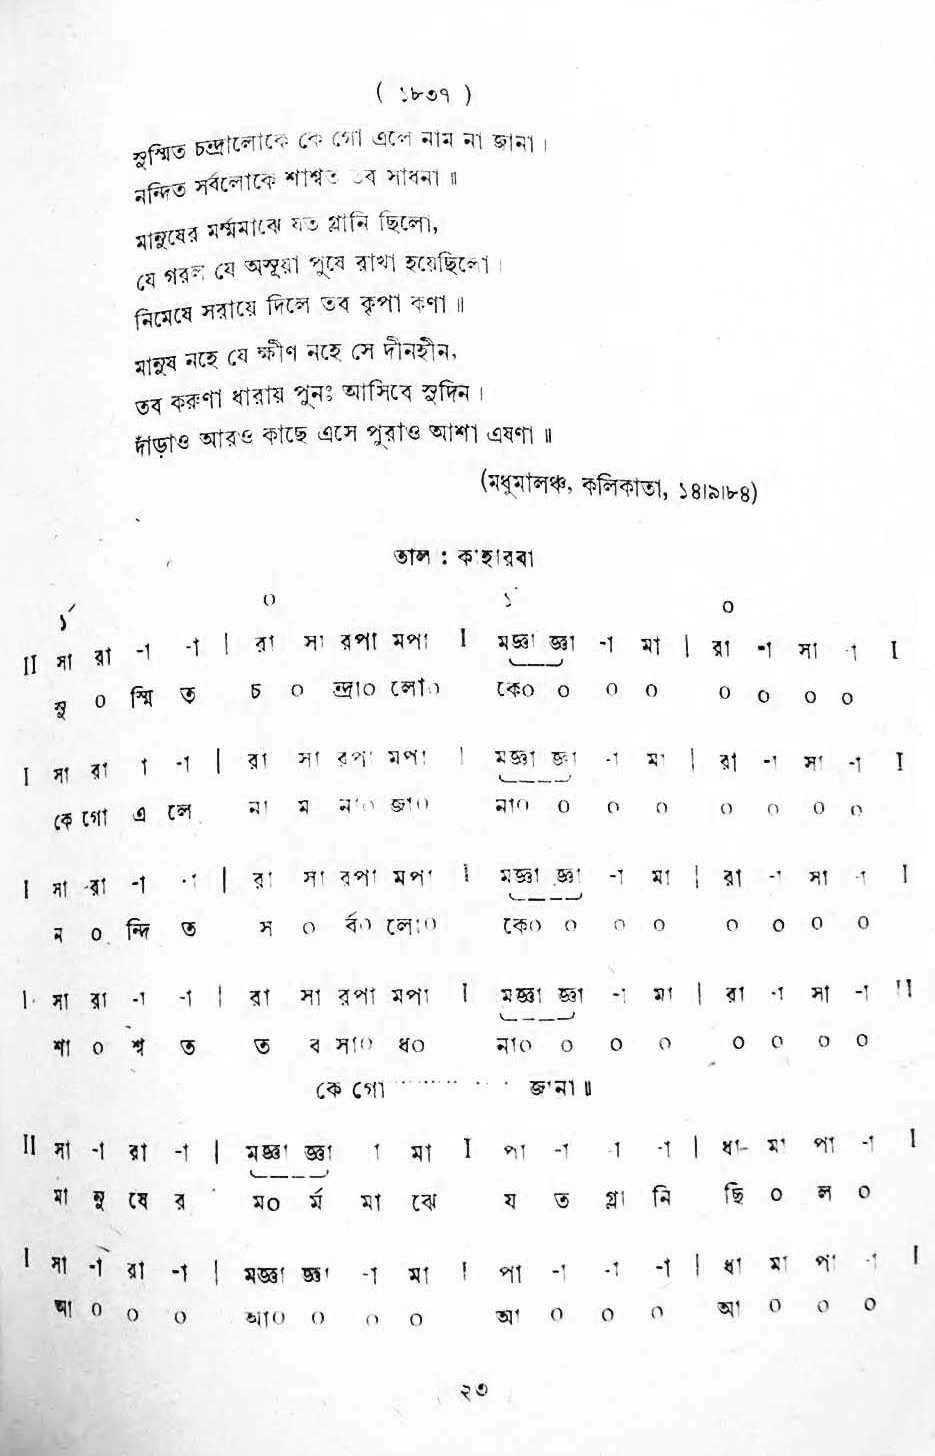 ( ১৮৩৭ )
সুস্মিত চন্দ্রালোকে কে গো এলে নাম না জানা ।
নন্দিত সর্বলোকে শাশ্বত তব সাধনা ॥
মানুষের মর্ম্মমাঝে যত গ্লানি ছিলো,
যে গরল যে অসূয়া পুষে রাখা হয়েছিলো ।
নিমেষে সরায়ে দিলে তব কৃপা কণা ॥
মানুষ নহে যে ক্ষীণ নহে সে দীনহীন,
তব করুণা ধারায় পুনঃ আসিবে সুদিন ।
দাঁড়াও আরও কাছে এসে পুরাও আশা এষণা ॥
(মধুমালঞ্চ, কলিকাতা, ১৪।৯।৮৪)
তাল : কাহারবা
১´ ০ ১´ ০
II সা রা -া -া | রা সা রপা মপা I মজ্ঞা জ্ঞা -া মা | রা -া সা -া I
সু ০ স্মি ত চ ০ ন্দ্রা০ লো০ কে০ ০ ০ ০ ০ ০ ০ ০
I সা রা া -া | রা সা রপা মপা I মজ্ঞা জ্ঞা -া মা | রা -া সা -া I
কে গো এ লে না ম না০ জা০ না০ ০ ০ ০ ০ ০ ০ ০
I সা -রা -া -া | রা সা রপা মপা I মজ্ঞা জ্ঞা -া মা | রা -া সা -া I
ন ০ ন্দি ত স ০ র্ব০ লো০ কে০ ০ ০ ০ ০ ০ ০ ০
I সা রা -া -া | রা সা রপা মপা I মজ্ঞা জ্ঞা -া মা | রা -া সা -া II
শা ০ শ্ব ত ত ব সা০ ধ০ না০ ০ ০ ০ ০ ০ ০ ০
কে গো ............ জানা ॥
II সা -া রা -া | মজ্ঞা জ্ঞা া মা I পা -া -া -া | ধা- মা পা -া I
মা নু ষে র ম০ র্ম মা ঝে য ত গ্লা নি ছি ০ ল ০
I সা -া রা -া | মজ্ঞা জ্ঞা -া মা I পা -া -া -া | ধা মা পা -া I
আ ০ ০ ০ আ০ ০ ০ ০ আ ০ ০ ০ আ ০ ০ ০
২৩